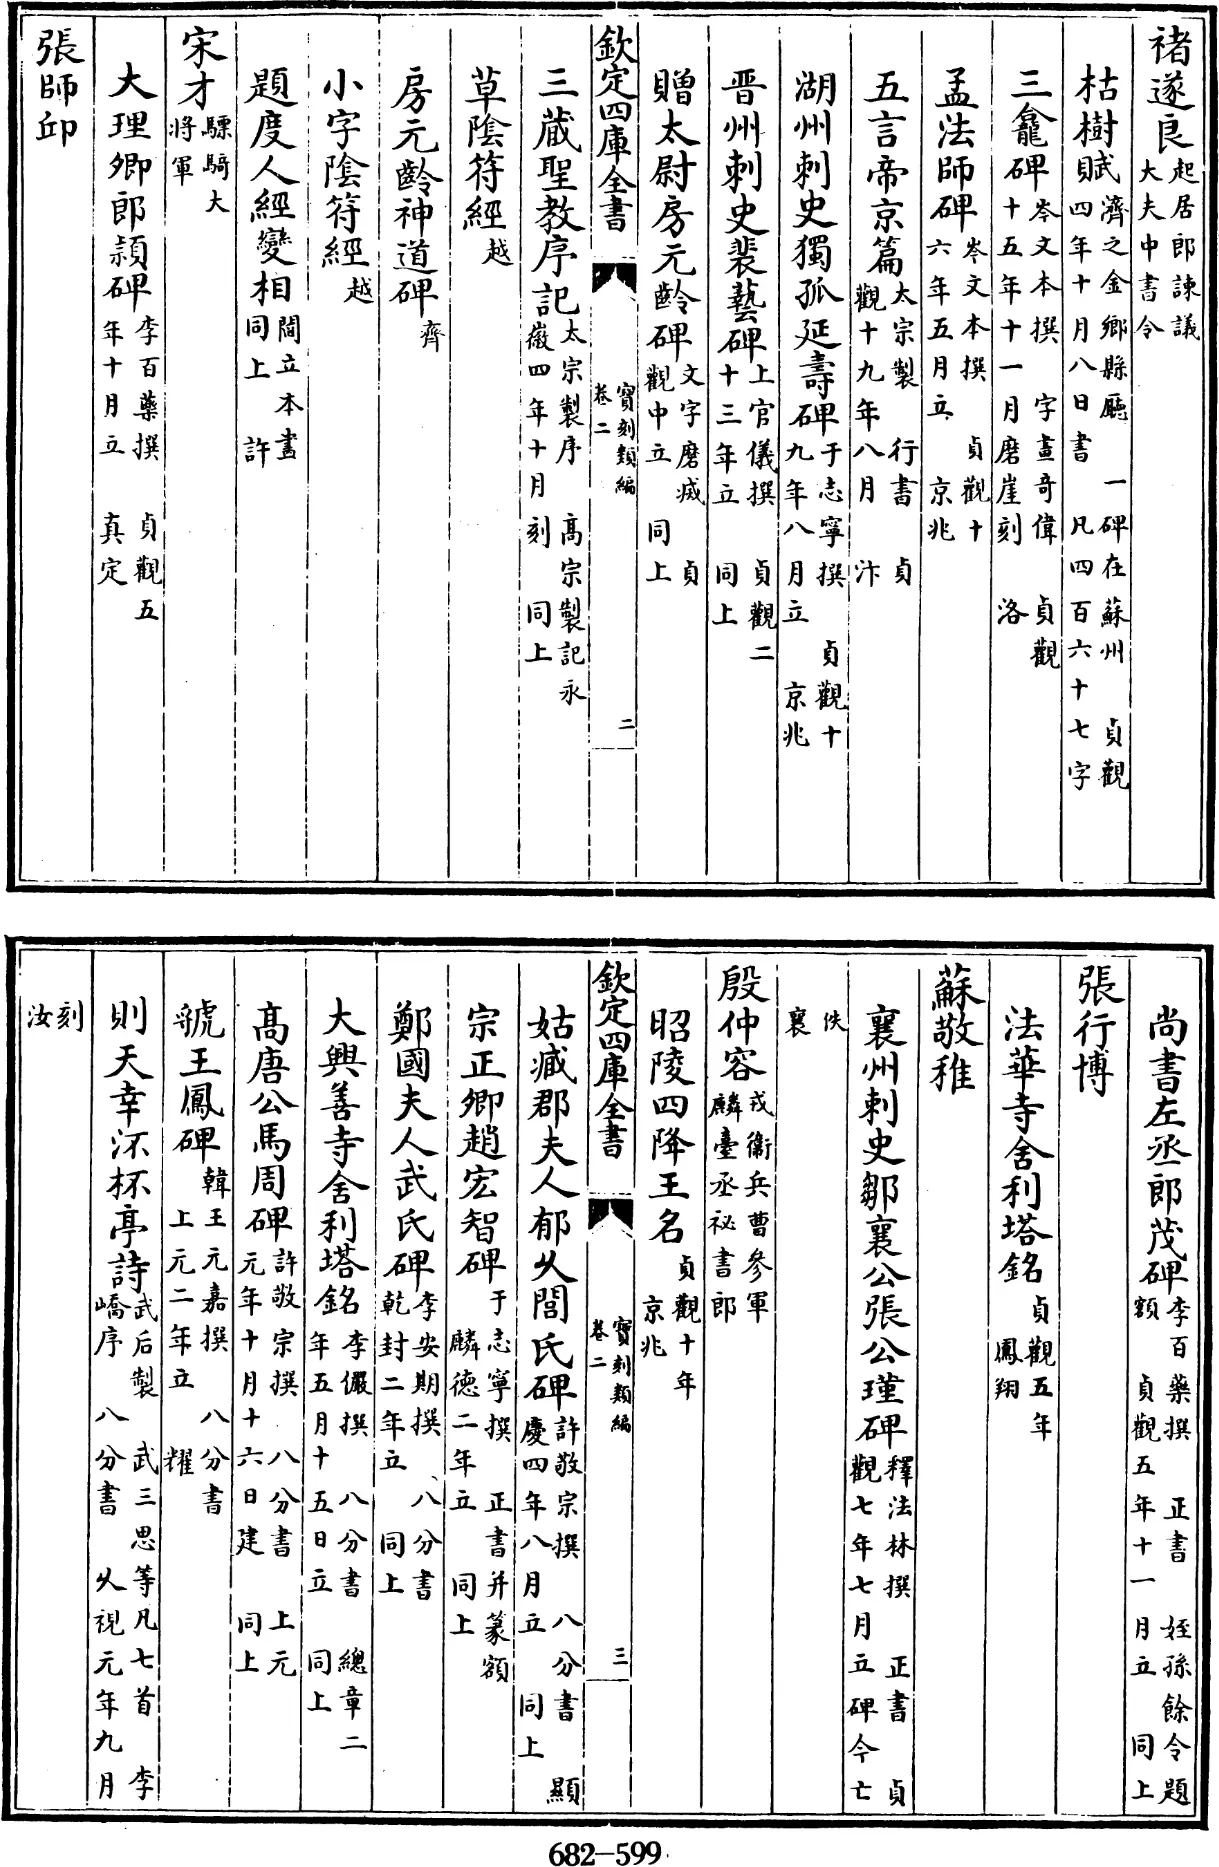 褚遂良起居郎諫議大夫中書令
枯樹賦濟之金鄉縣廳 一碑在蘇州 貞觀四年十月八日書 凡四百六十七字
三龕碑岑文本撰 字畫奇偉 貞觀十五年十一月磨崖刻 洛
孟法師碑岑文本撰 貞觀十六年五月立 京兆
五言帝京篇太宗製 行書 貞觀十九年八月 汴
湖州刺史獨孤延壽碑于志寧撰 貞觀十九年八月立 京兆
晉州刺史裴藝碑上官儀撰 貞觀二十三年立 同上
贈太尉房元齡碑文字磨滅 貞觀中立 同上
欽定四庫全書 寶刻類編卷二 二
三藏聖教序記太宗製序 高宗製記永徽四年十月刻 同上
草陰符經越
房元齡神道碑齊
小字陰符經越
題度人經變相閻立本畫 同上 許
宋才驃騎大將軍
大理卿郎穎碑李百藥撰 貞觀五年十月立 真定
張師邱
尚書左丞郎茂碑李百藥撰 正書 姪孫餘令題額 貞觀五年十一月立 同上
張行博
法華寺舍利塔銘貞觀五年 鳳翔
蘇敬稚
襄州刺史鄒襄公張公瑾碑釋法林撰 正書 貞觀七年七月立碑今亡
佚 襄
殷仲容戎衛兵曹參軍麟臺丞祕書郎
昭陵四降王名貞觀十年 京兆
欽定四庫全書 寶刻類編卷二 三
姑臧郡夫人郁久閭氏碑許敬宗撰 八分書 顯慶四年八月立 同上
宗正卿趙宏智碑于志寧撰 正書并篆額 麟德二年立 同上
鄭國夫人武氏碑李安期撰 八分書 乾封二年立 同上
大興善寺舍利塔銘李儼撰 八分書 總章二年五月十五日立 同上
高唐公馬周碑許敬宗撰 八分書 上元元年十月十六日建 同上
虢王鳳碑韓王元嘉撰 八分書 上元二年立 耀
則天幸流杯亭詩武后製 武三思等凡七首 李嶠序 八分書 久視元年九月
刻 汝
682—599